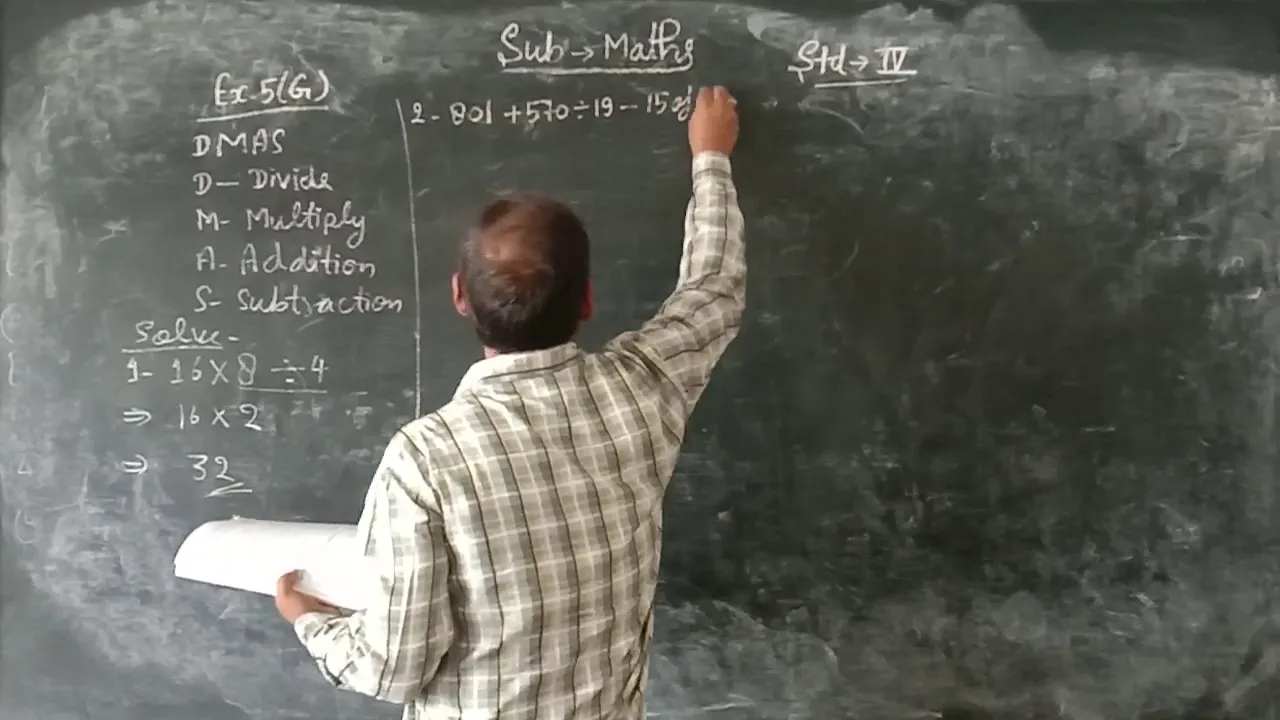 Sub → Maths
Std → IV
Ex-5(G)
DMAS
D- Divide
M- Multiply
A- Addition
S- Subtraction
Solve-
1- 16 × 8 ÷ 4
⇒ 16 × 2
⇒ 32
2- 801 + 570 ÷ 19 - 15